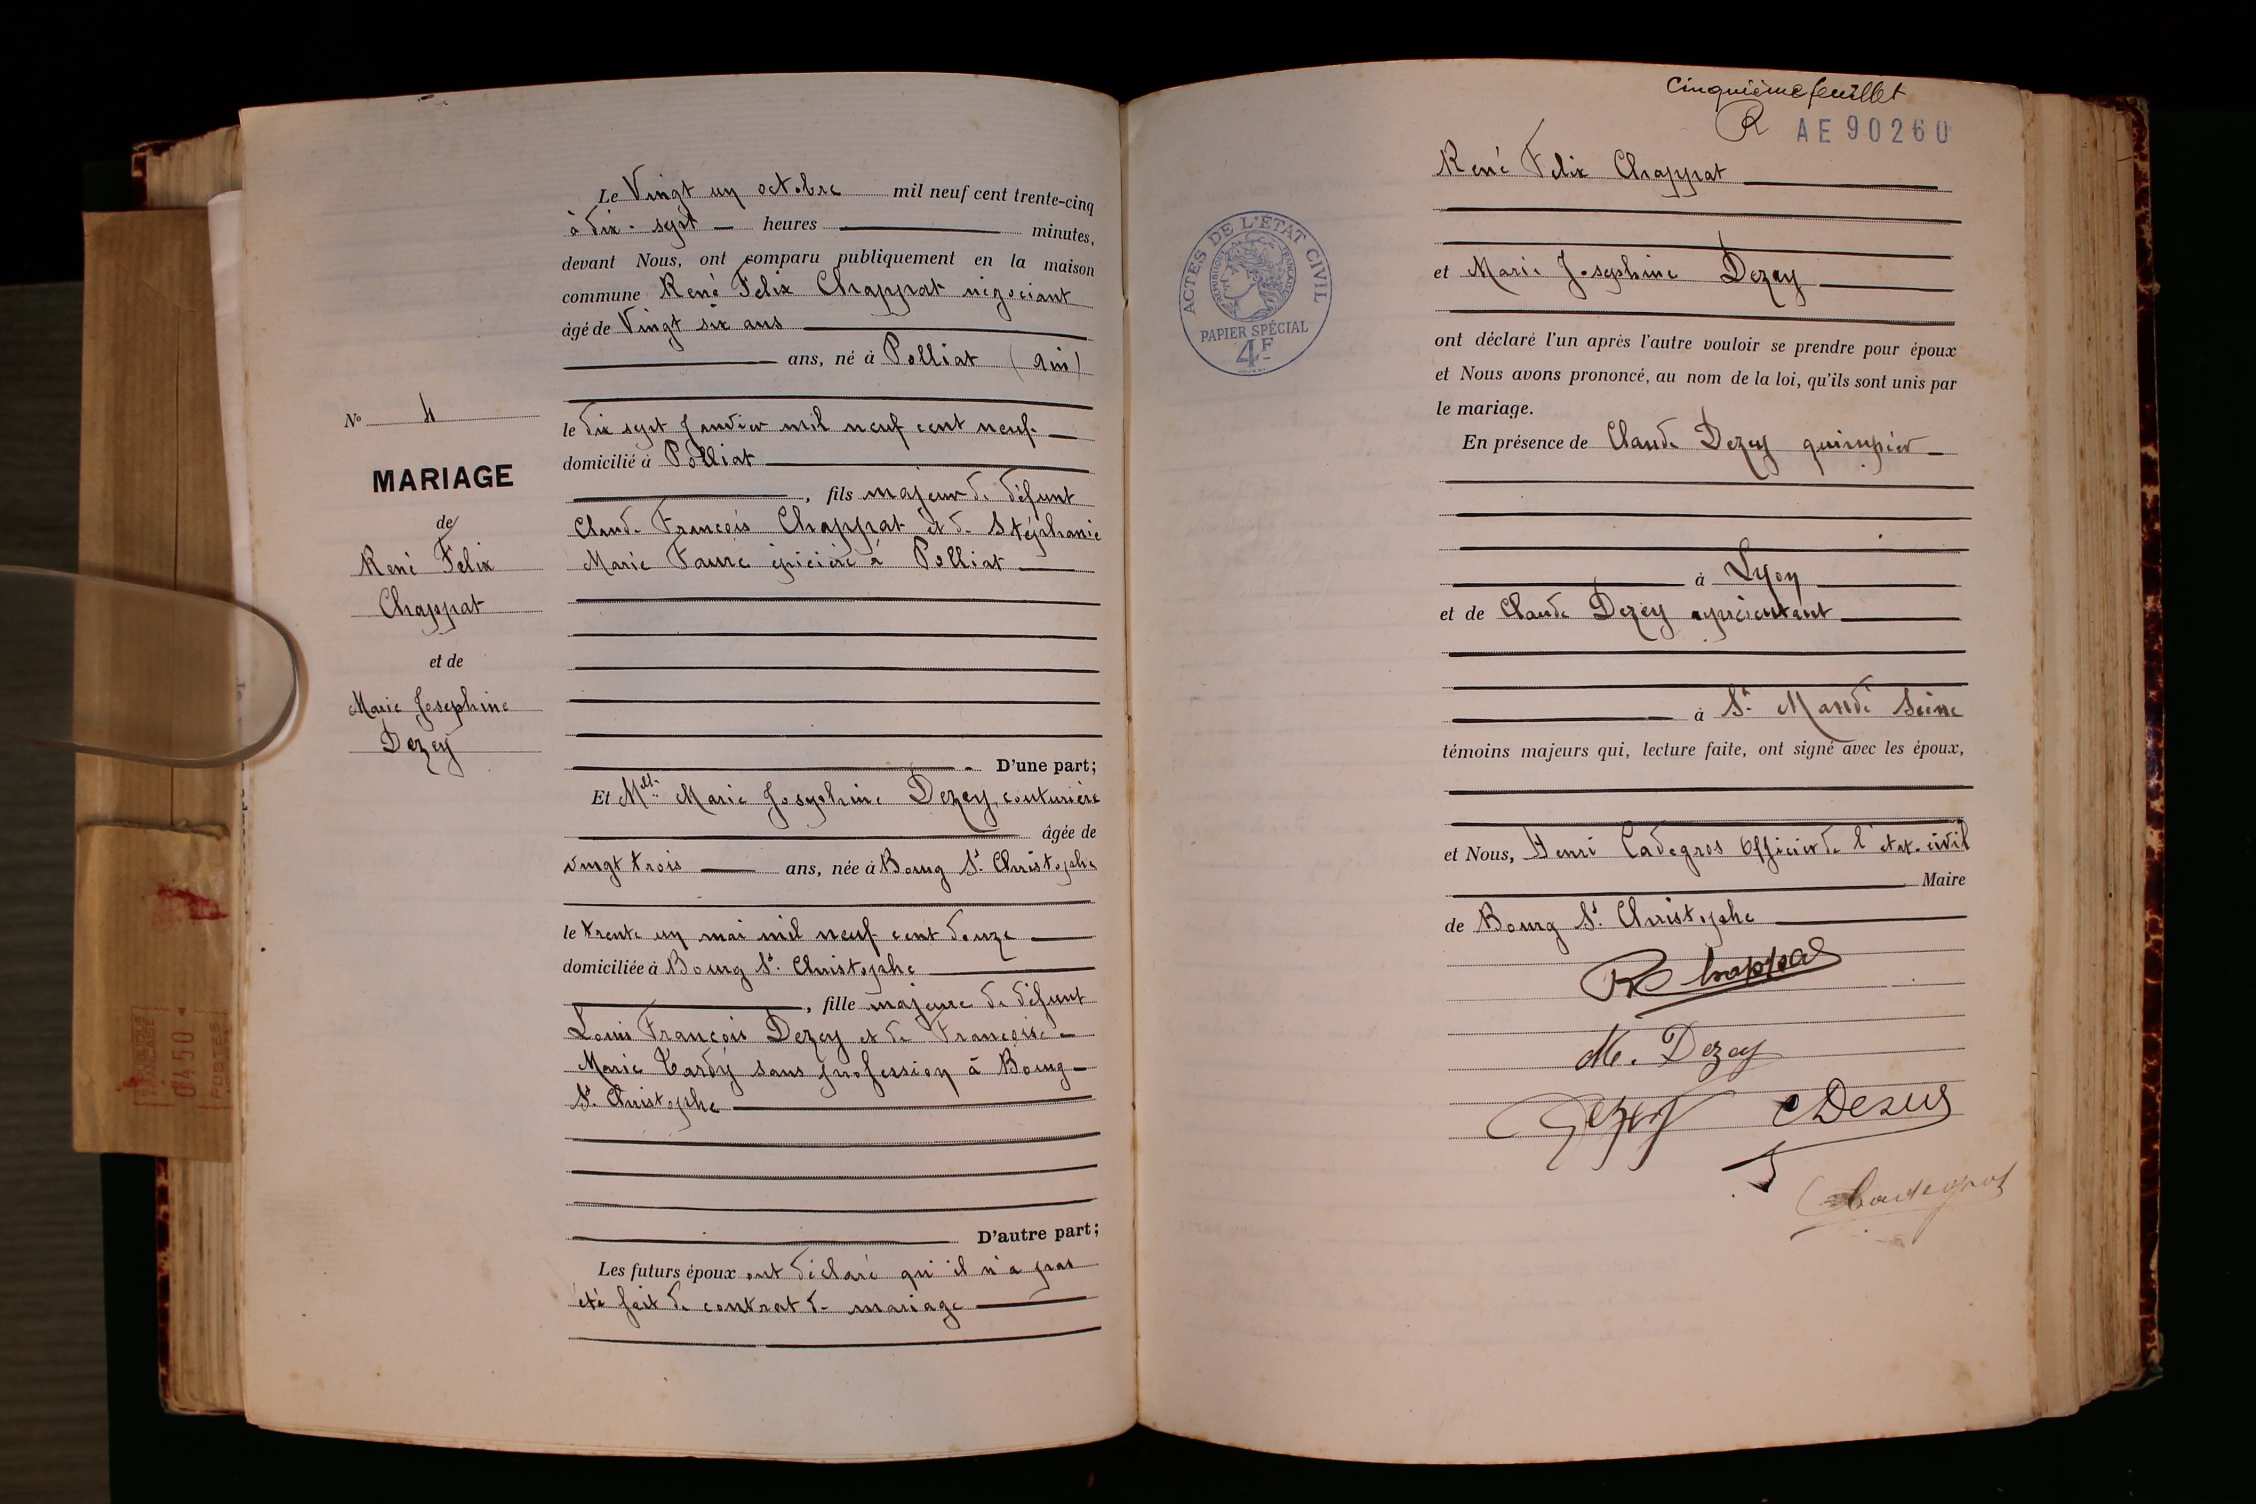 Le Vingt un octobre mil neuf cent trente-cinq
à dix-sept heures minutes,
devant Nous, ont comparu publiquement en la maison
commune René Felix Chappat négociant
âgé de Vingt six ans
ans, né à Polliat (Ain)
le dix sept Janvier mil neuf cent neuf
domicilié à Polliat
, fils majeur de défunt
Claude François Chappat et de Stéphanie
Marie Faure épicière à Polliat
D'une part;
Et Mlle Marie Josephine Dezey, couturière
âgée de
vingt trois ans, née à Bourg St. Christophe
le trente un mai mil neuf cent douze
domiciliée à Bourg St. Christophe
, fille majeure de défunt
Louis François Dezey et de Françoise
Marie Tardy sans profession à Bourg
St. Christophe
D'autre part;
Les futurs époux ont déclaré qu'il n'a pas
été fait de contrat de mariage
No 4
MARIAGE
de
René Felix
Chappat
et de
Marie Josephine
Dezey
0450
POSTES
Cinquième feuillet
R AE 90260
ACTES DE L'ÉTAT CIVIL
RÉPUBLIQUE FRANÇAISE
PAPIER SPÉCIAL
4F
René Felix Chappat
et Marie Josephine Dezey
ont déclaré l'un après l'autre vouloir se prendre pour époux
et Nous avons prononcé, au nom de la loi, qu'ils sont unis par
le mariage.
En présence de Claude Dezey
à Lyon
et de Claude Dezey représentant
à St. Mandé Seine
témoins majeurs qui, lecture faite, ont signé avec les époux,
et Nous, Henri Cadegros Officier de l'état-civil
Maire
de Bourg St. Christophe
R Chappat
M. Dezey
Dezey
Cadegros